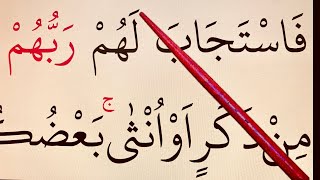 فَاسْتَجَابَ لَهُمْ رَبُّهُمْ
مِنْ ذَكَرٍ اَوْ اُنْثٰى ۚ بَعْضُكُ